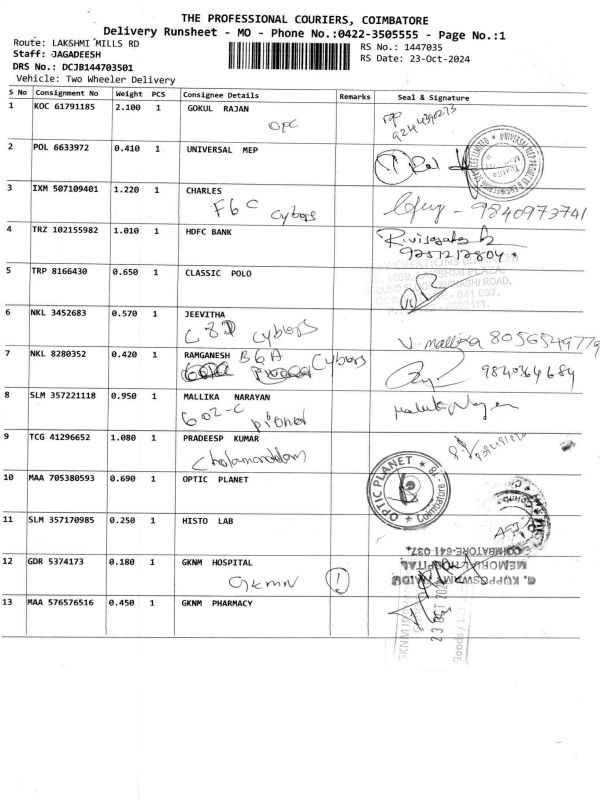 THE PROFESSIONAL COURIERS, COIMBATORE
Delivery Runsheet - MO - Phone No.:0422-3505555 - Page No.:1
Route: LAKSHMI MILLS RD
Staff: JAGADEESH
DRS No.: DCJB144703501
Vehicle: Two Wheeler Delivery
RS No.: 1447035
RS Date: 23-Oct-2024
S No Consignment No Weight PCS Consignee Details Remarks Seal & Signature
1 KOC 61791185 2.100 1 GOKUL RAJAN
2 POL 6633972 0.410 1 UNIVERSAL MEP
3 IXM 507109401 1.220 1 CHARLES
F6C Cybers
9840973741
4 TRZ 102155982 1.010 1 HDFC BANK
5 TRP 8166430 0.650 1 CLASSIC POLO
6 NKL 3452683 0.570 1 JEEVITHA
Cybers
V. mallika 8056549779
7 NKL 8280352 0.420 1 RAMGANESH B6A Cybers
9840364684
8 SLM 357221118 0.950 1 MALLIKA NARAYAN
602-C
9 TCG 41296652 1.080 1 PRADEESP KUMAR
10 MAA 705380593 0.690 1 OPTIC PLANET
OPTIC PLANET
Coimbatore
11 SLM 357170985 0.250 1 HISTO LAB
12 GDR 5374173 0.180 1 GKNM HOSPITAL
GKMN
G. KUPPUSWAMY NAIDU
MEMORIAL HOSPITAL
COIMBATORE-641 037.
13 MAA 576576516 0.450 1 GKNM PHARMACY